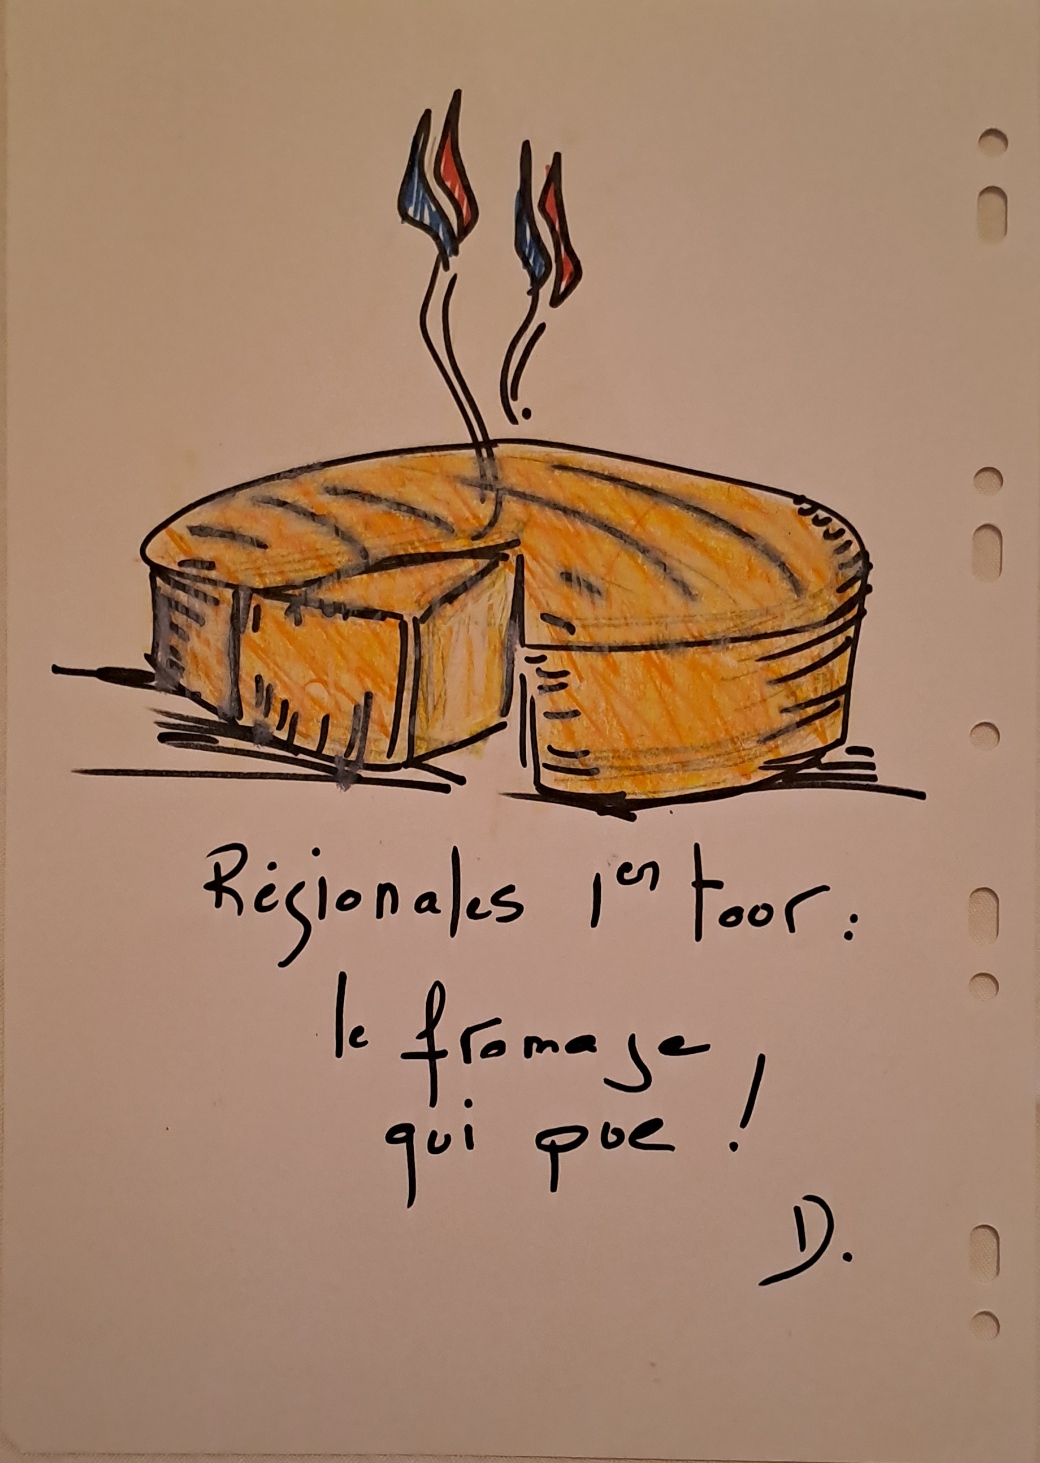 Régionales 1er tour :
le fromage
qui pue !
D.